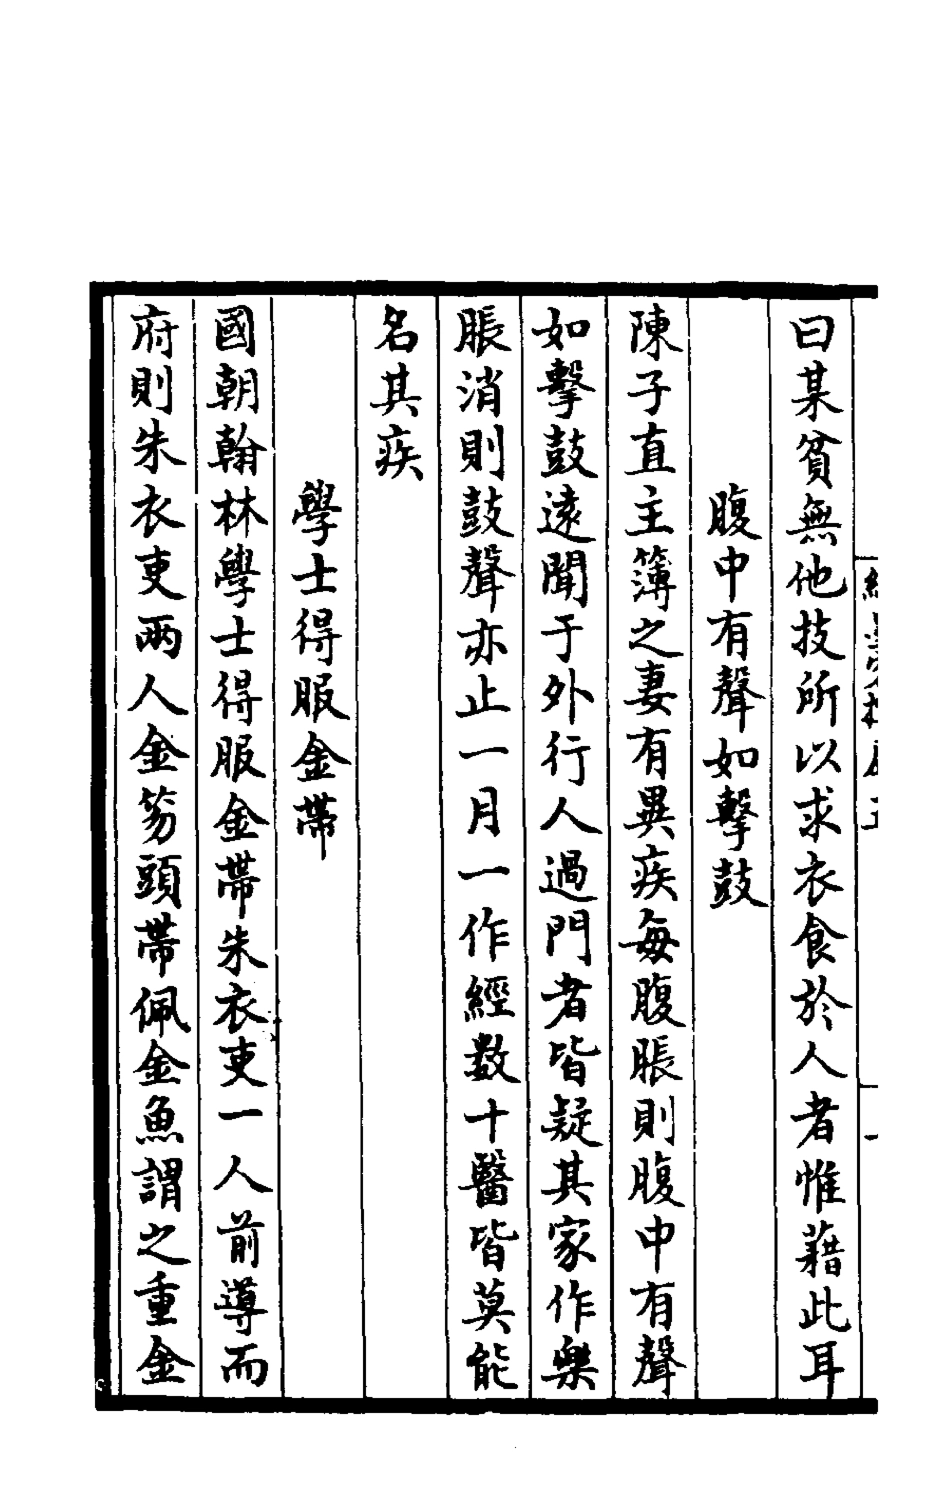 曰某貧無他技所以求衣食於人者惟藉此耳
腹中有聲如擊鼓
陳子直主簿之妻有異疾每腹脹則腹中有聲
如擊鼓遠聞于外行人過門者皆疑其家作樂
脹消則鼓聲亦止一月一作經数十醫皆莫能
名其疾
學士得服金帶
國朝翰林學士得服金帶朱衣吏一人前導而
府則朱衣吏兩人金笏頭帶佩金魚謂之重金